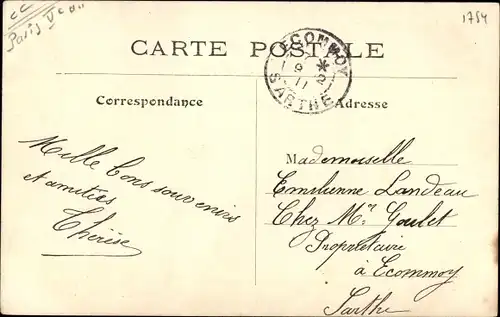 CC
Paris V
1754
CARTE POSTALE
ECOMMOY
9 * 2
11
SARTHE
Correspondance
Adresse
Mille bons souvenirs
et amitiés
Thérèse
Mademoiselle
Emilienne Landeau
Chez Mr Goulet
Propriétaire
à Ecommoy
Sarthe